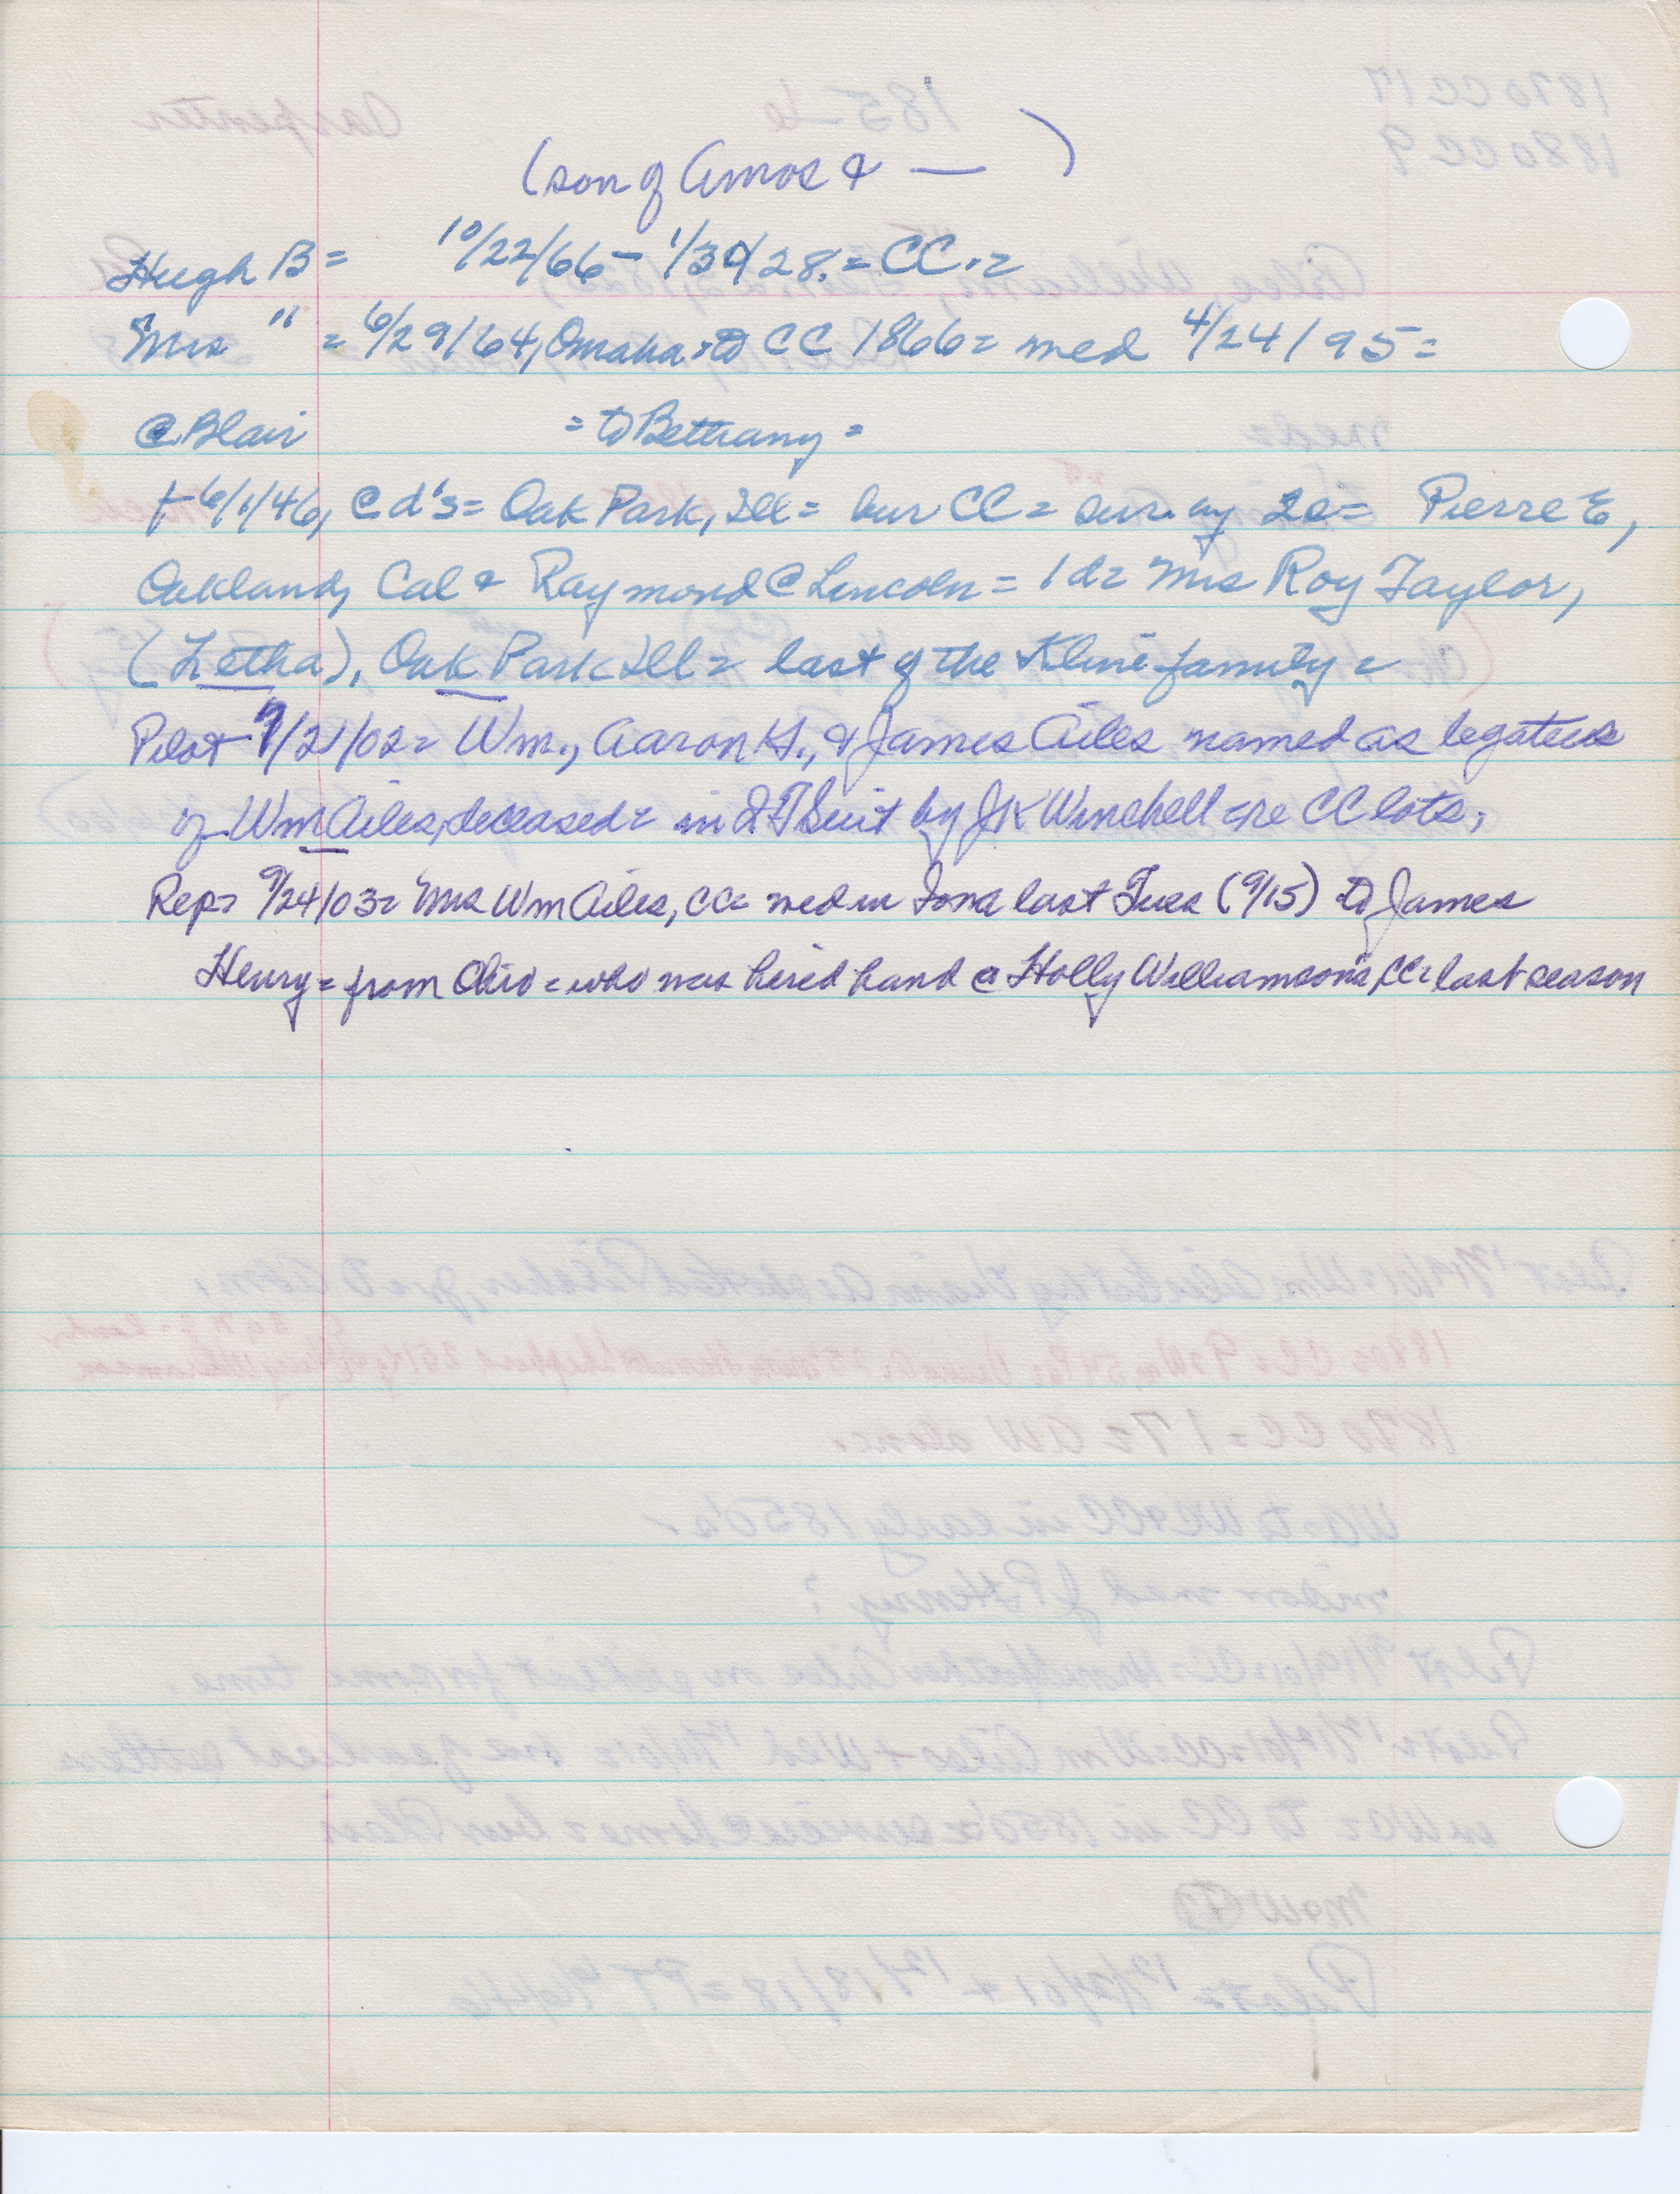 (son of Amos & — )
Hugh B = 10/22/66 – 1/30/28. = CC. =
Mrs " = 6/29/64, Omaha = to CC 1866 = med 4/24/95 =
@ Blair = to Bethany =
+ 6/1/46, @ d's = Oak Park, Ill = bur CC = sur. by 2s = Pierre E,
Oakland, Cal & Raymond @ Lincoln = 1 d = Mrs Roy Taylor,
(Letha), Oak Park Ill = last of the Kline family =
Pilot 9/21/02 = Wm., Aaron H., & James Ailes named as legatees
of Wm Ailes, deceased = in Suit by JK Winchell = re CC lots;
Rep = 9/24/03 = Mrs Wm Ailes, CC = med in Iowa last Tues (9/15) to James
Henry = from Ohio = who was hired hand @ Holly Williamson's, CC = last season